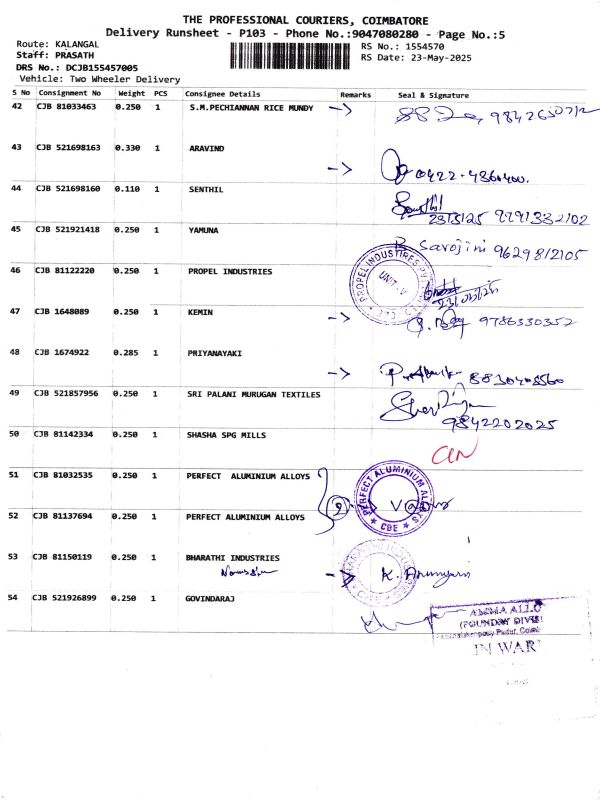 THE PROFESSIONAL COURIERS, COIMBATORE
Delivery Runsheet - P103 - Phone No.:9047080280 - Page No.:5
Route: KALANGAL
RS No.: 1554570
Staff: PRASATH
RS Date: 23-May-2025
DRS No.: DCJB155457005
Vehicle: Two Wheeler Delivery
S No Consignment No Weight PCS Consignee Details Remarks Seal & Signature
42 CJB 81033463 0.250 1 S.M.PECHIANNAN RICE MUNDY ->
43 CJB 521698163 0.330 1 ARAVIND
->
44 CJB 521698160 0.110 1 SENTHIL
23/5/25
45 CJB 521921418 0.250 1 YAMUNA
Sarojini 9629812105
46 CJB 81122220 0.250 1 PROPEL INDUSTRIES
PROPEL INDUSTRIES
UNIT-V
47 CJB 1648089 0.250 1 KEMIN
-> 9786330352
48 CJB 1674922 0.285 1 PRIYANAYAKI
->
49 CJB 521857956 0.250 1 SRI PALANI MURUGAN TEXTILES
9842202025
50 CJB 81142334 0.250 1 SHASHA SPG MILLS
51 CJB 81032535 0.250 1 PERFECT ALUMINIUM ALLOYS
PERFECT ALUMINIUM ALLOYS
CBE
52 CJB 81137694 0.250 1 PERFECT ALUMINIUM ALLOYS
53 CJB 81150119 0.250 1 BHARATHI INDUSTRIES
-> K.
54 CJB 521926899 0.250 1 GOVINDARAJ
(FOUNDRY
IN WAR